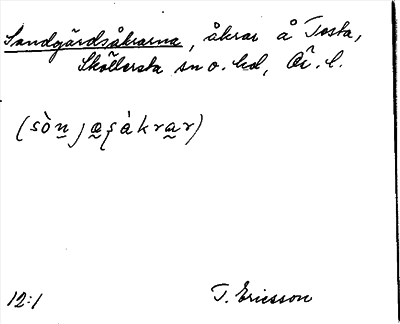 Sandgärdsåkrarna, åkrar å Tosta,
Sköllersta sn o. hd, Ör. l.
(sò̀n̰ja̰ʂåkra̰r)
12:1 T. Ericsson